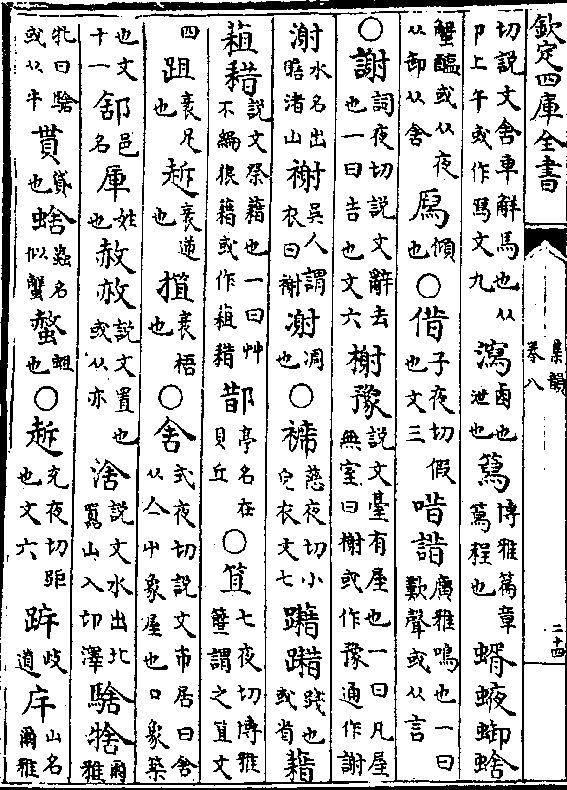 欽定四庫全書
集韻
卷八
二十四
切說文舍車解馬也从卩上午或作寫文九 瀉鹵也泄也 博雅篇章程也 蝑
蟹醢或从夜从卸从舍 傾也 ○借子夜切假也文三 唶諎廣雅鳴也一曰歎聲或从言
○謝詞夜切說文辭去也一曰告也文六 榭豫說文臺有屋也一曰凡屋無室曰榭或作豫通作謝
水名出瞻渚山 吳人謂衣曰 凋也 ○褯慈夜切小兒衣文七 躤踖踐也或省 藉
蒩耤說文祭藉也一曰艸不編狼藉或作蒩耤 亭名在貝丘 ○笡七夜切博雅簦謂之笡文
四 跙衺足也 衺逆也 衺梧也 ○舍式夜切說文市居曰舍从亼屮象屋也口象築
也文十一 邑名 厙姓也 赦說文置也或从亦 涻說文水出北嚻山入卭澤 騇爾雅
牝曰騇或从牛 貰貸也 蟲名似蟹 螫蛆也 ○充夜切距也文六 岐道 山名爾雅